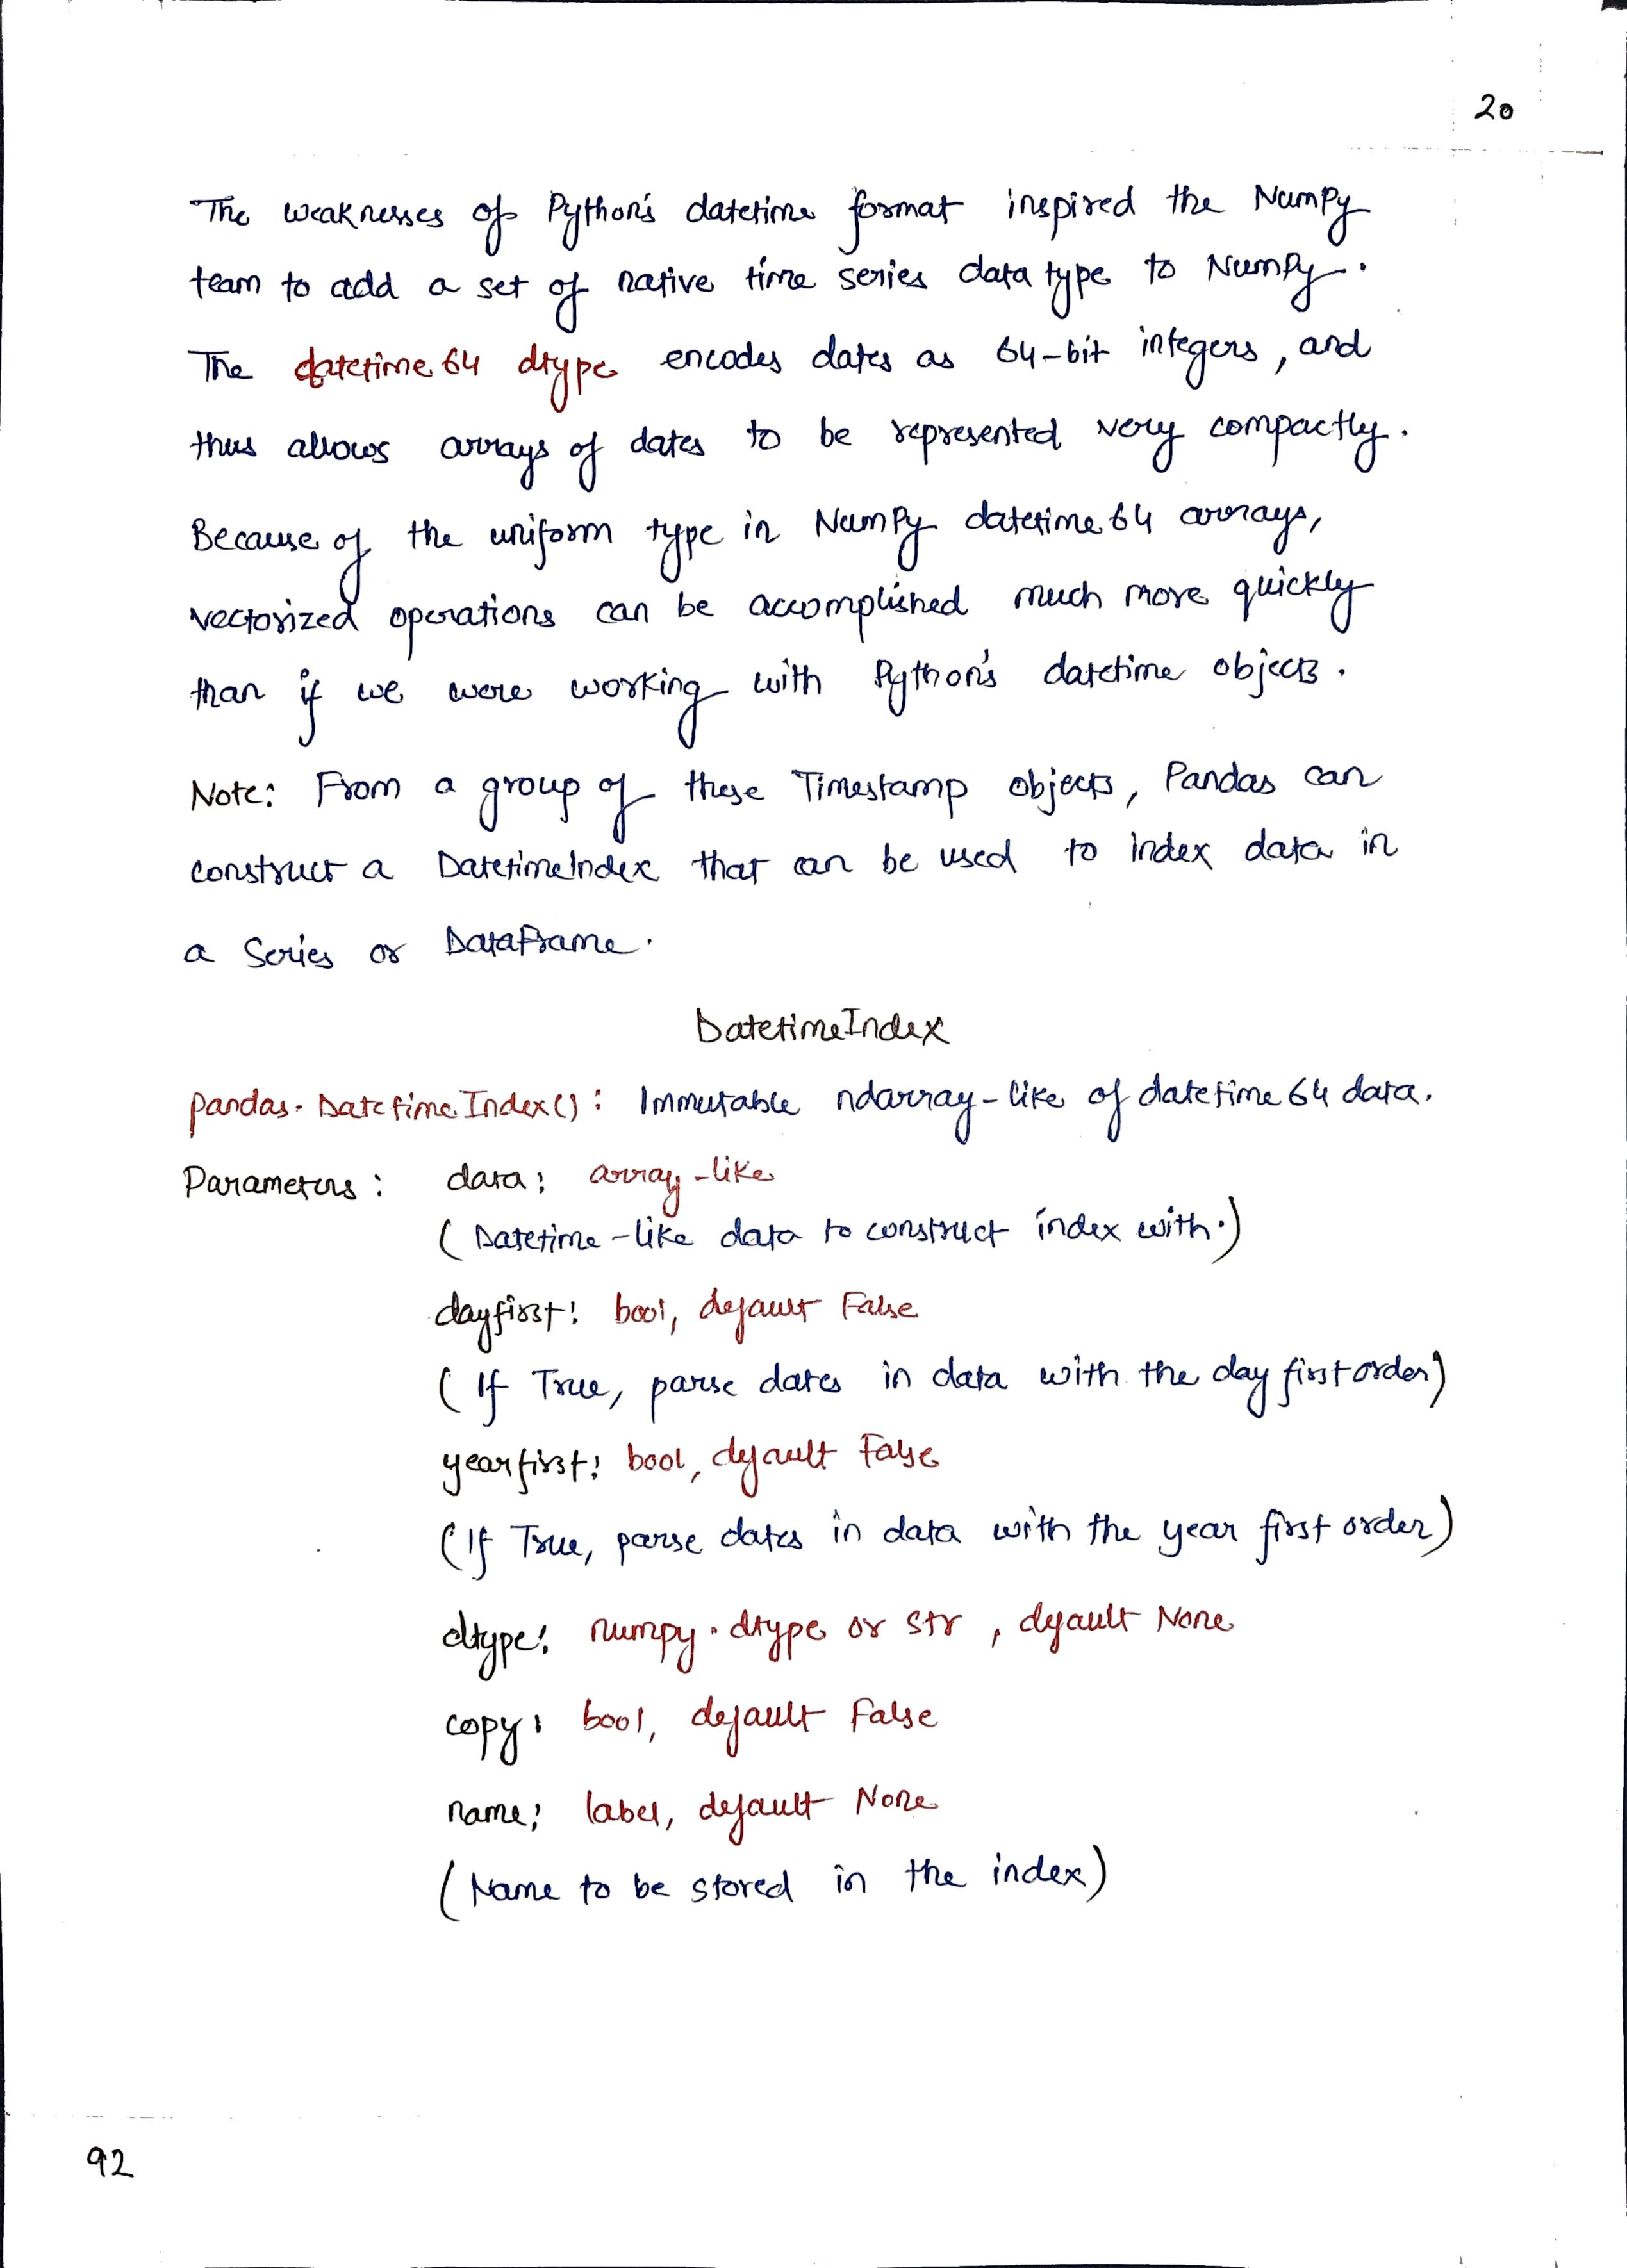 20
The weaknesses of Python's datetime format inspired the NumPy
team to add a set of native time series data type to NumPy.
The datetime64 dtype encodes dates as 64-bit integers, and
thus allows arrays of dates to be represented very compactly.
Because of the uniform type in NumPy datetime64 arrays,
vectorized operations can be accomplished much more quickly
than if we were working with Python's datetime objects.
Note: From a group of these Timestamp objects, Pandas can
construct a DatetimeIndex that can be used to index data in
a Series or DataFrame.
DatetimeIndex
pandas.DatetimeIndex(): Immutable ndarray-like of datetime64 data.
Parameters: data: array-like
(Datetime-like data to construct index with.)
dayfirst: bool, default False
(If True, parse dates in data with the day first order)
yearfirst: bool, default False
(If True, parse dates in data with the year first order)
dtype: numpy.dtype or str, default None
copy: bool, default False
name: label, default None
(Name to be stored in the index)
92